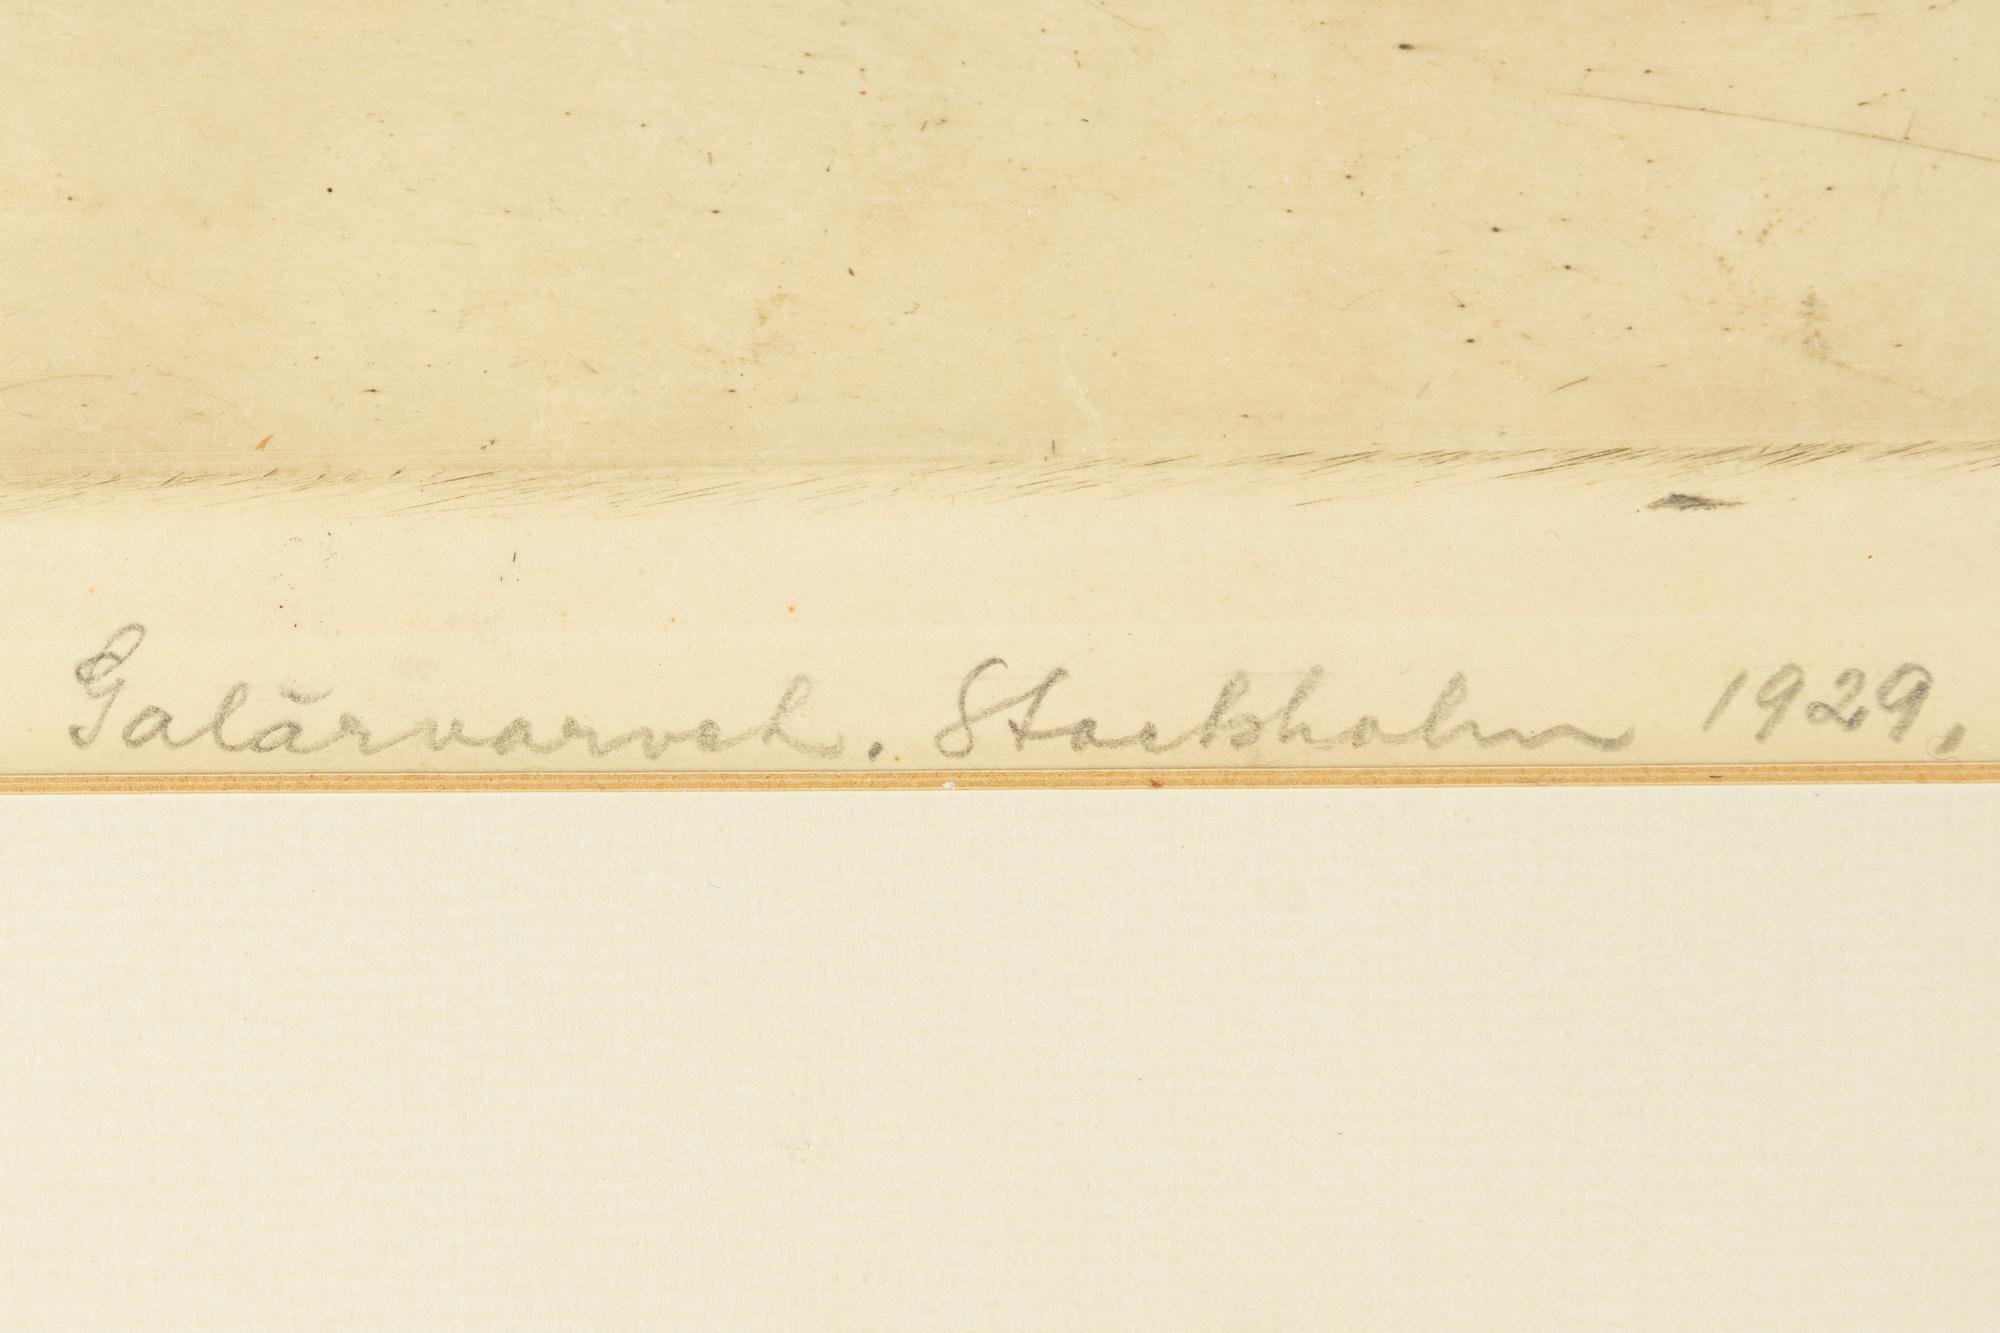 Galärvarvet. Stockholm 1929.